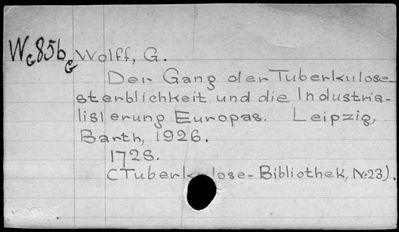 Wc85b Wolff, G.
G
Der Gang der Tuberkulose-
sterblichkeit und die Industria-
lisierung Europas. Leipzig,
Barth, 1926.
172S.
(Tuberkulose-Bibliothek, Nr23).